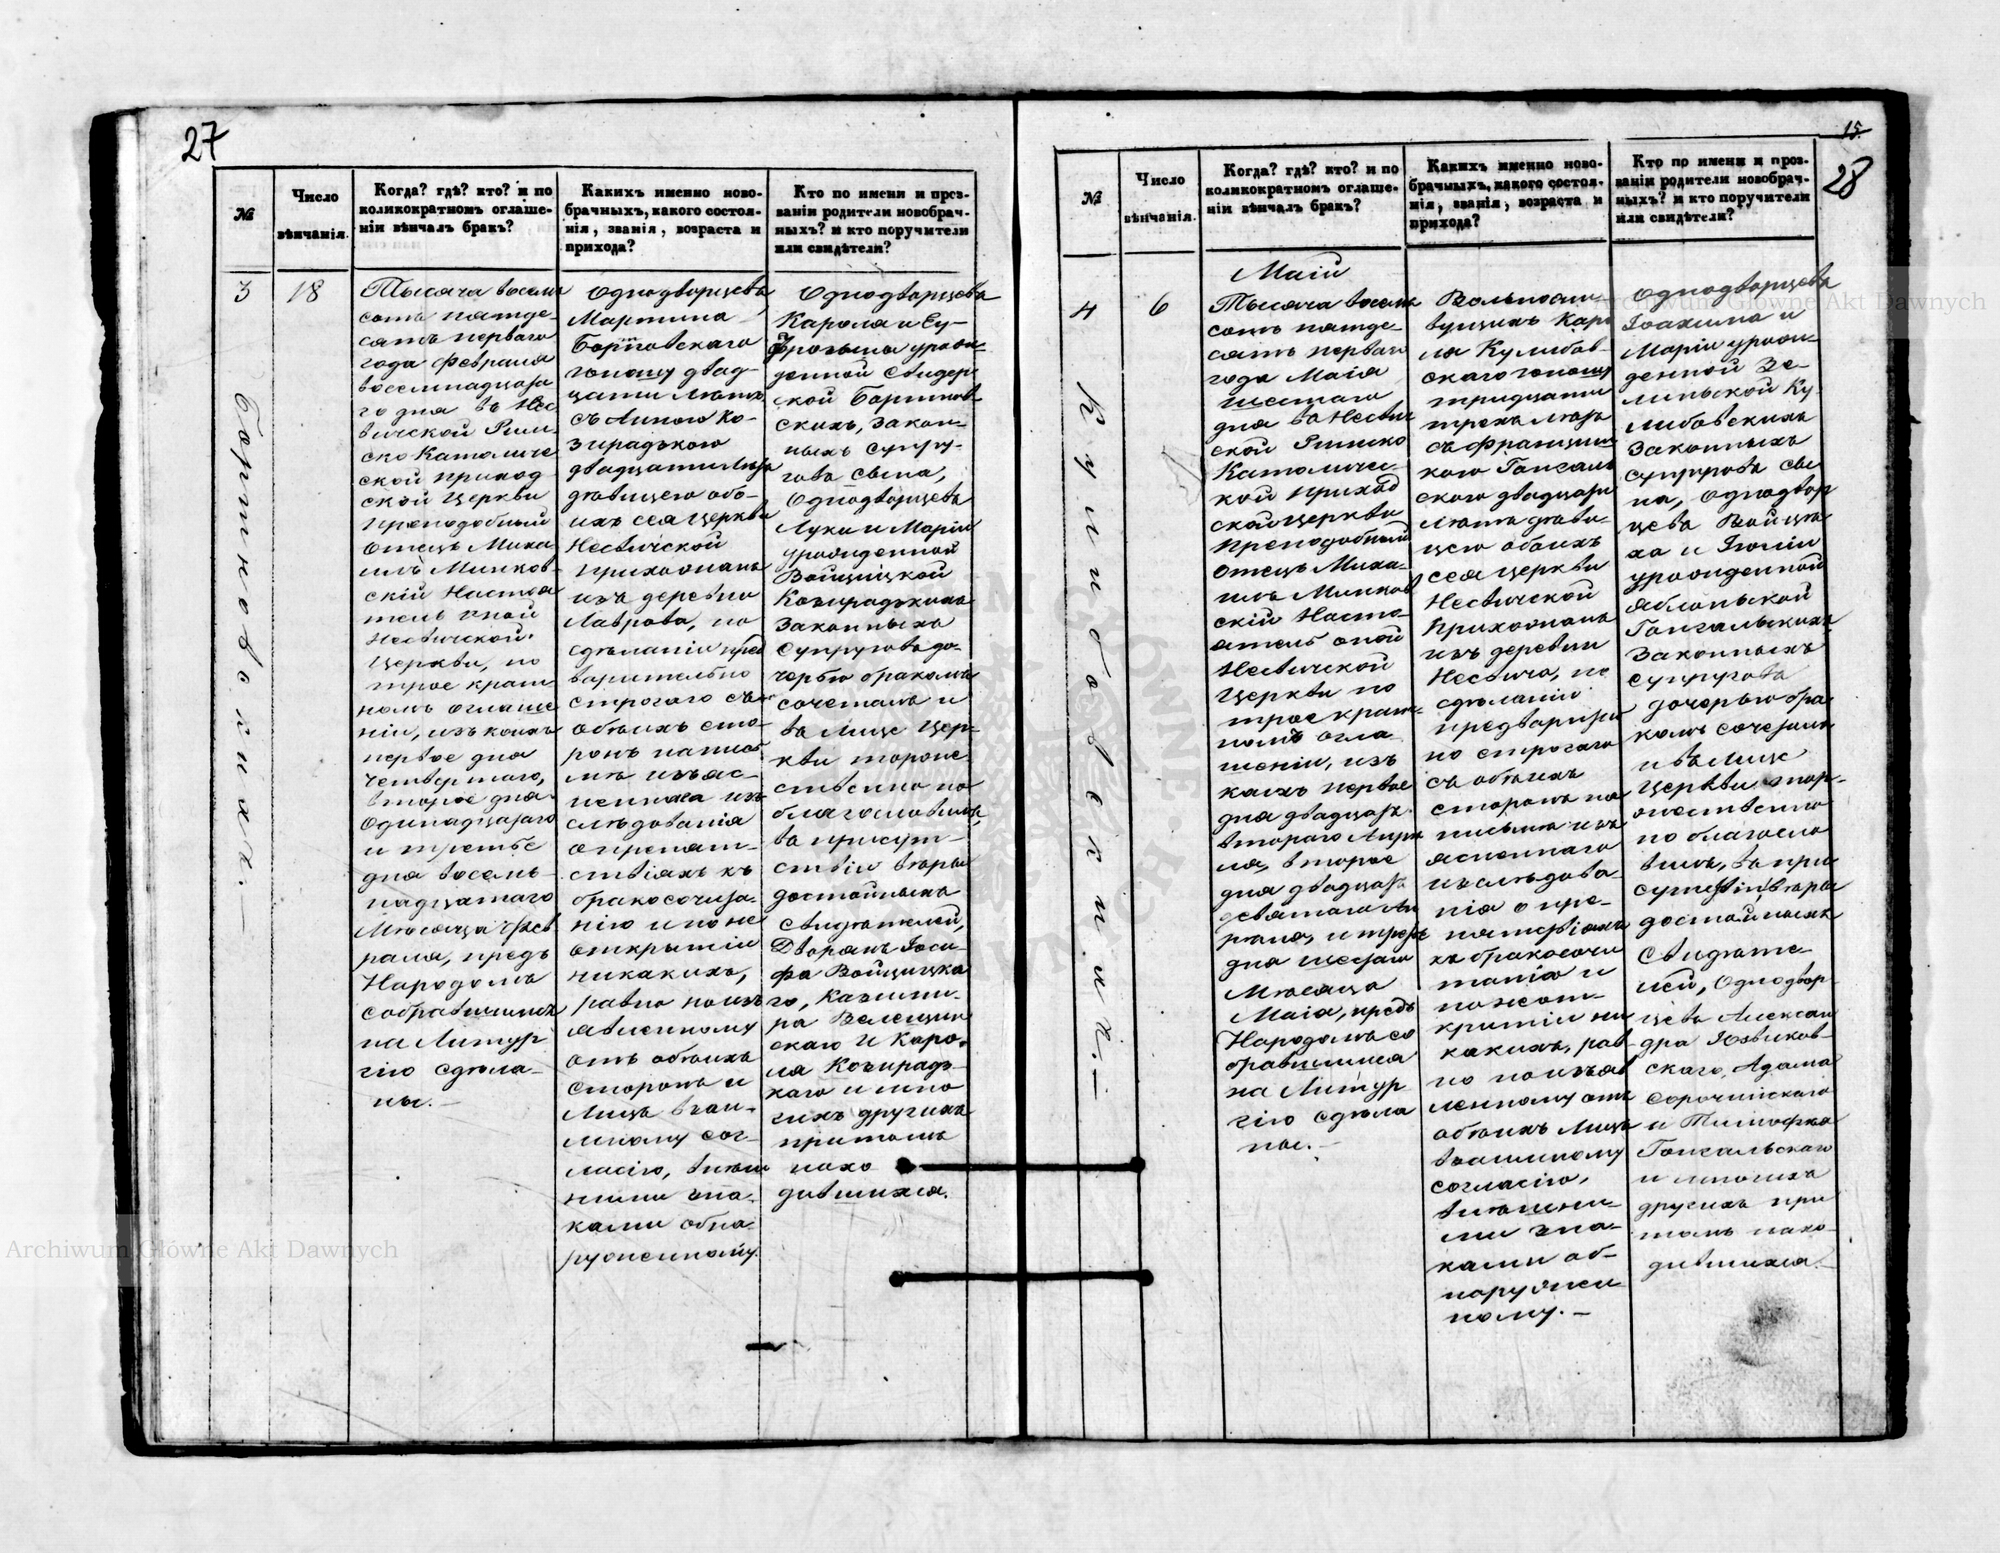 27
№
Число
вѣнчанія.
Когда? гдѣ? кто? и по
коликократномъ оглаше-
ніи вѣнчалъ бракъ?
Какихъ именно ново-
брачныхъ, какого состоя-
нія, званія, возраста и
прихода?
Кто по имени и проз-
ваніи родители новобрач-
ныхъ? и кто поручители
или свидѣтели?
3
Бортновскихъ.—
18
Тысяча восемь
сотъ пятде-
сятъ перваго
года Февраля
восемнадцата
го дня въ Нес
вичской Рим
ско Католиче
ской приход
ской Церкви
Преподобный
Отецъ Миха
илъ Минков-
скій Настоя
тель оной
Несвичской
Церкви, по
трое крат-
номъ оглаше
ніи, изъ коихъ
первое дня
четвертаго,
второе дня
одинадцатаго
и третье
дня восемь-
надцатаго
Мѣсяца Фев
раля, предъ
Народомъ
собравшимся
на Литур
гію сдѣла-
ны.—
Однодворцевъ
Мартина
Бортновскаго
юношу двад-
цати лѣтъ
съ Анною Ко-
зирадзкою
двадцати лѣтъ
дѣвицею обо-
ихъ сея Церкви
Несвичской
прихожанъ
изъ деревни
Лаврова, по
сдѣланіи пред
варительно
строгаго съ
обѣихъ сто-
ронъ письм
мѣ изъяс-
неннаго из
слѣдованія
о препят-
ствіяхъ къ
бракосочета-
нію и по не
открытіи
никакихъ,
равно по изъ
явленному
отъ обѣихъ
сторонъ и
Лицъ взаи-
мному сог-
ласію, внѣш
ними зна-
ками обна-
руженному.
Однодворцевъ
Кароля и Еу-
фрозыны урож-
денной Свидер
ской Бортнов-
скихъ, закон-
ныхъ супру-
говъ сына,
Однодворцевъ
Луки и Маріи
урожденной
Войцицкой
Козирадзкихъ
Законныхъ
Супруговъ до-
черью бракомъ
сочеталъ и
въ Лице Цер-
кви торже-
ственно по
благословилъ,
въ присут-
ствіи вѣры
достойныхъ
Свидѣтелей,
Дворянъ Іоси-
фа Войцицка
го, Казими-
ра Велещин
скаго и Каро-
ля Козирадз-
каго и мно
гихъ другихъ
притомъ
нахо
дившихся.
15.
28
№
Число
вѣнчанія.
Когда? гдѣ? кто? и по
коликократномъ оглаше-
ніи вѣнчалъ бракъ?
Какихъ именно ново-
брачныхъ, какого состоя-
нія, званія, возраста и
прихода?
Кто по имени и проз-
ваніи родители новобрач-
ныхъ? и кто поручители
или свидѣтели?
4
Кулибовскихъ.—
6
Маій
Тысяча восемь
сотъ пятде-
сятъ перваго
года Маія
шестаго
дня въ Несвич
ской Римско
Католичес-
кой Приход
ской Церкви
Преподобный
Отецъ Миха-
илъ Минков
скій Насто-
ятель оной
Несвичской
Церкви по
трое крат-
номъ огла
шеніи, изъ
каихъ первое
дня двадцать
втораго Апрѣ
ля, второе
дня двадцать
девятаго Ап
рѣля, и третье
дня шестаго
Мѣсяца
Маія, предъ
Народомъ со
бравшимся
на Литур
гію сдѣла
ны.—
Вольноли-
вущихъ Каро
ля Кулибов-
скаго юношу
тридцати
трехъ лѣтъ
съ Францишк
кою Гонталь
скою двадцати
лѣтъ дѣви-
цею обоихъ
сея Церкви
Несвичской
Прихожанъ
изъ деревни
Несвича, по
сдѣланіи
предварител
но строгаго
съ обѣихъ
сторонъ на
письмѣ изъ
яснennаго
изслѣдова-
нія о пре-
пятствіяхъ
къ бракосоче
танію и
по не от-
крытіи ни
какихъ, рав
но по изъяв
ленному отъ
обѣихъ Лицъ
взаимному
согласію,
внѣшни-
ми зна-
ками об-
наружен
ному.—
Однодворцевъ
Іоахима и
Маріи урож-
денной Зе-
линской Ку-
либовскихъ
Законныхъ
супруговъ сы
на, Однодвор
цевъ Войцѣ
ха и Юліи
урожденной
Яблонской
Гонтальскихъ
Законныхъ
Супруговъ
дочерью бра-
комъ сочеталъ
и въ Лице
Церкви тор-
жественно
по благосло
вилъ, въ при
сутствіи вѣры
достойныхъ
Свидѣте-
лей, Однодвор-
цевъ Алексан
дра Язвиков-
скаго, Адама
Сорочинскаго
и Тимофѣя
Гонтальскаго
и многихъ
другихъ при
томъ нахо-
дившихся.—
Archiwum Główne Akt Dawnych
Archiwum Główne Akt Dawnych